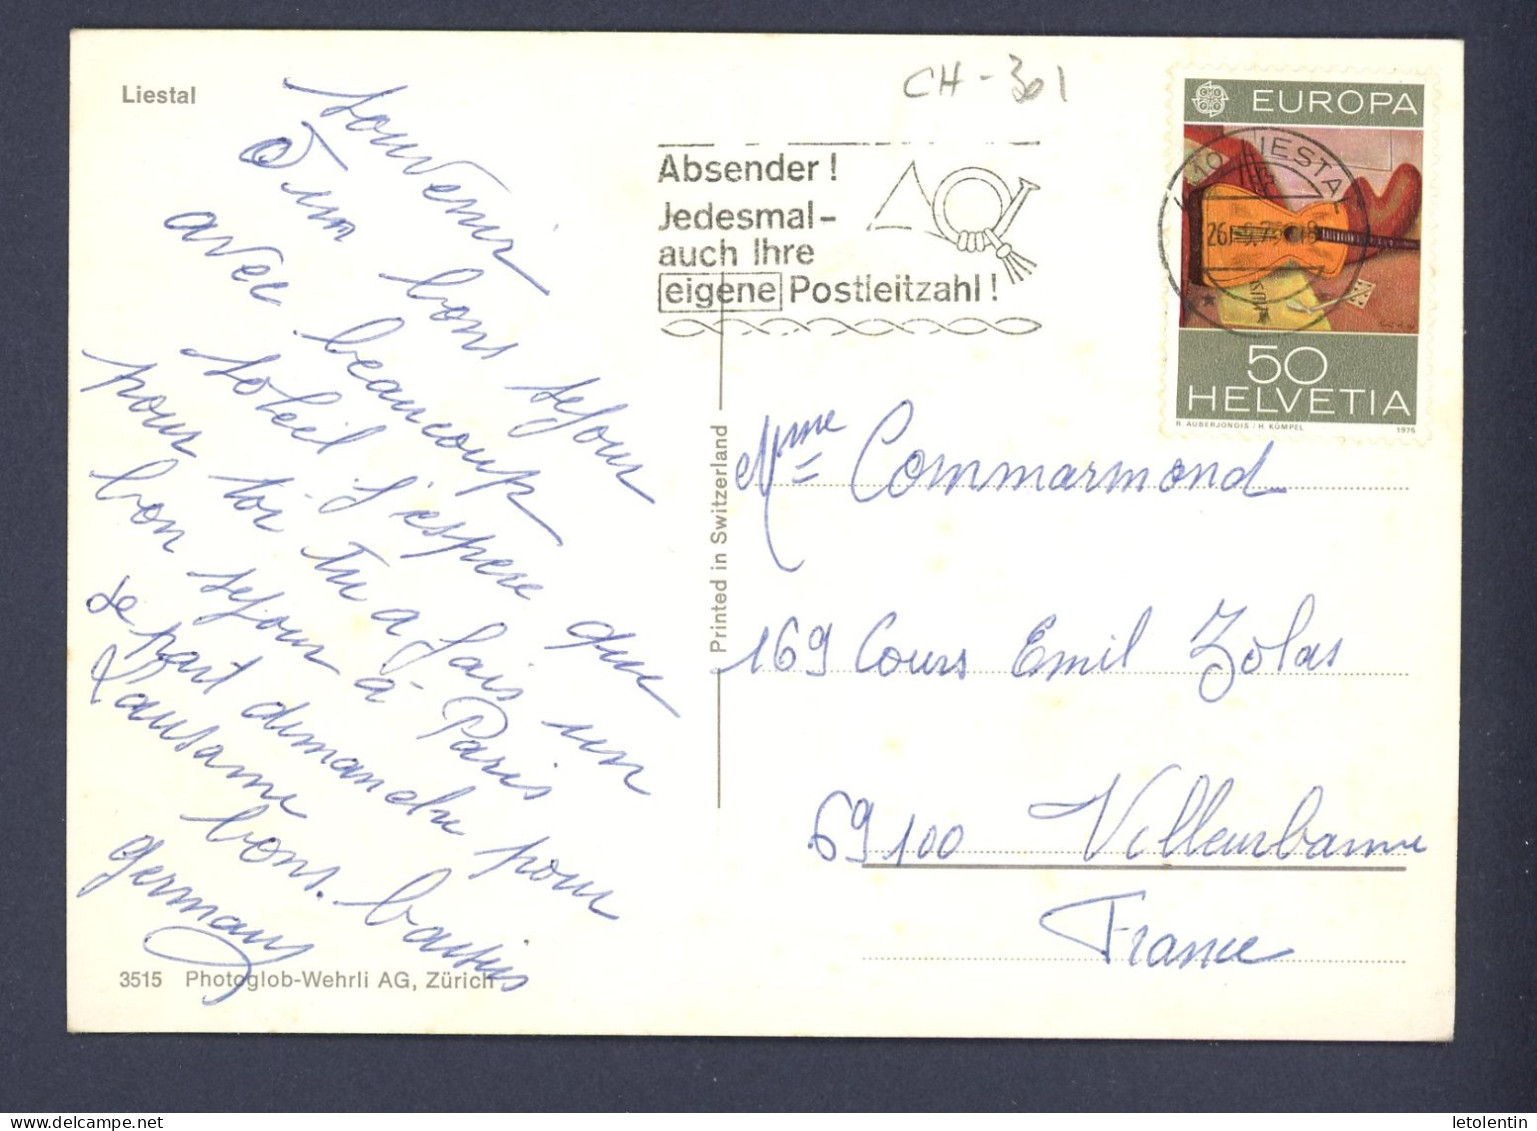 Liestal
CH-301
Absender!
Jedesmal-
auch Ihre
eigene Postleitzahl!
EUROPA
LIESTAL
50
HELVETIA
R. AUBERJONOIS / H. KÜMPEL 1975
Souvenir
d'un bons sejour
avec beaucoup
soleil j'espere que
pour toi Tu a fais un
bon sejour à Paris
Je part dimanche pour
Lausanne bons. baisers
germany
Printed in Switzerland
Mme Commarmond
169 Cours Emil Zolas
69100 Villeurbanne
France
3515 Photoglob-Wehrli AG, Zürich
letolentin